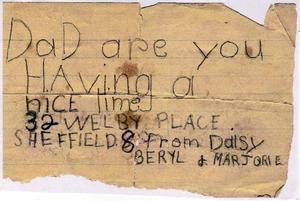 DaD are you
HAving a
nicE time
32 WELBY PLACE.
SHEFFIELD 8 from Daisy
BERYL & MARJORIE